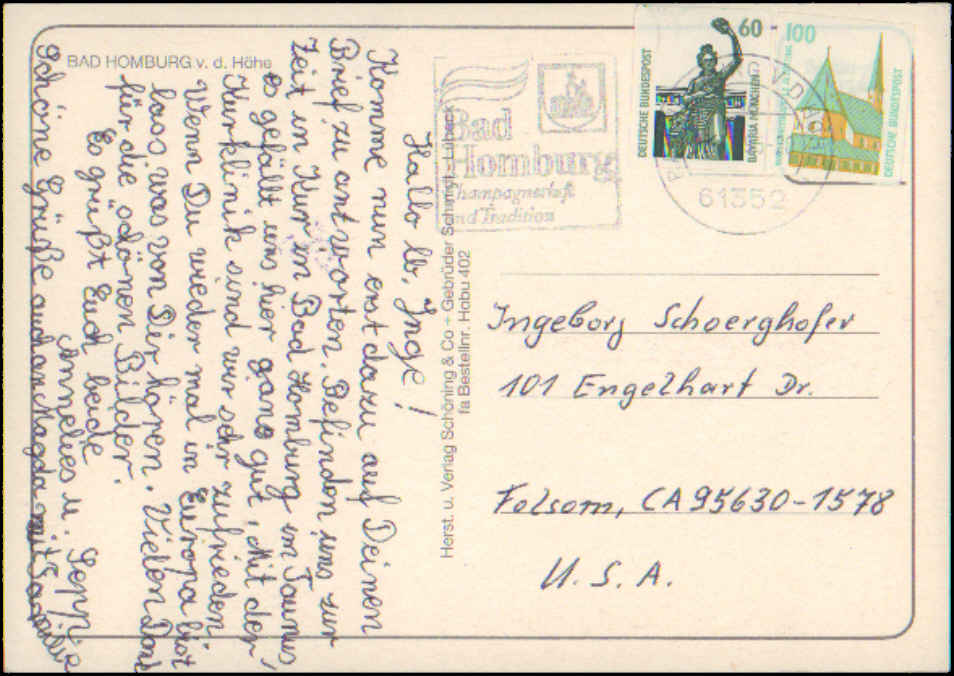 BAD HOMBURG v. d. Höhe
Hallo lb. Inge!
Komme nun erst dazu auf Deinen
Brief zu antworten. Befinden uns zur
Zeit in Kur in Bad Homburg im Taunus,
es gefällt uns hier ganz gut, Mit der
Kurklinik sind wir sehr zufrieden.
Wenn Du wieder mal in Europa bist
lass, was von Dir hören. Vielen Dank
für die schönen Bilder.
Es grüßt Euch beide
Annelies u. Sepp.
Schöne Grüße auch an Magda mit Familie
Herst. u. Verlag Schöning & Co + Gebrüder Schmidt, Lübeck
fa Bestellnr. Habu 402
Bad
Homburg
Champagnerluft
und Tradition
60
DEUTSCHE BUNDESPOST
BAVARIA MÜNCHEN
100
DEUTSCHE BUNDESPOST
61352
Ingeborg Schoerghofer
101 Engelhart Dr.
Folsom, CA 95630-1578
U. S. A.